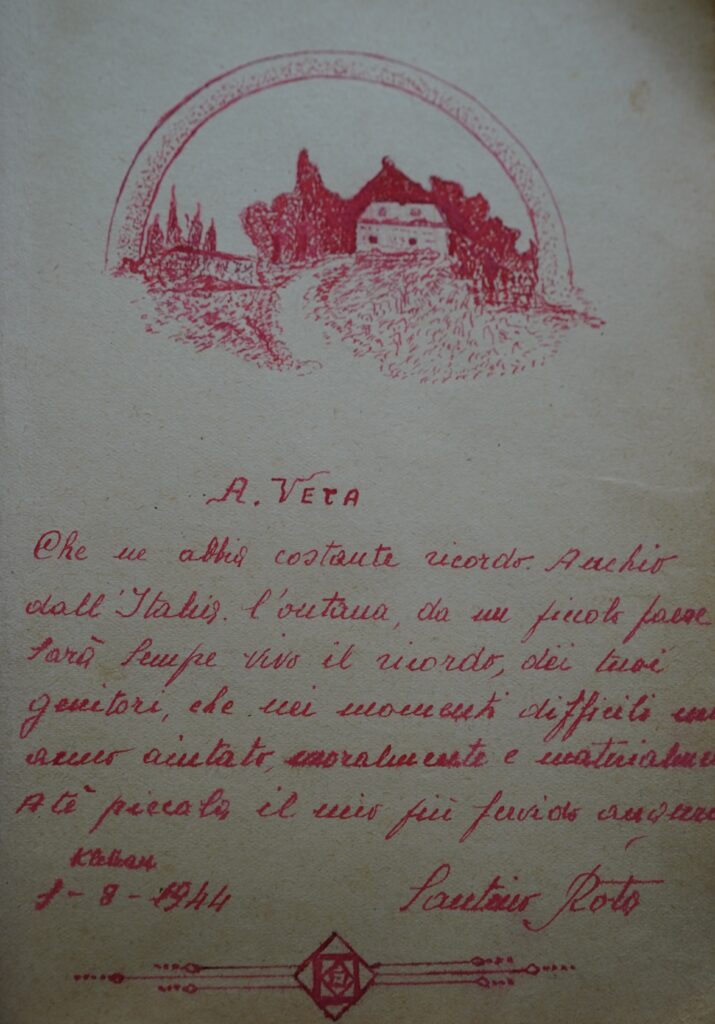 A. VERA
Che ne abbia costante ricordo. Anchio
dall'Italia. l'ontana, da un piccolo paese
Sarà Sempe vivo il ricordo, dei tuoi
genitori, che nei momenti difficili
anno aiutato, moralmente e
A tè piccola il mio più fervido
1-8-1944 Santino Roto